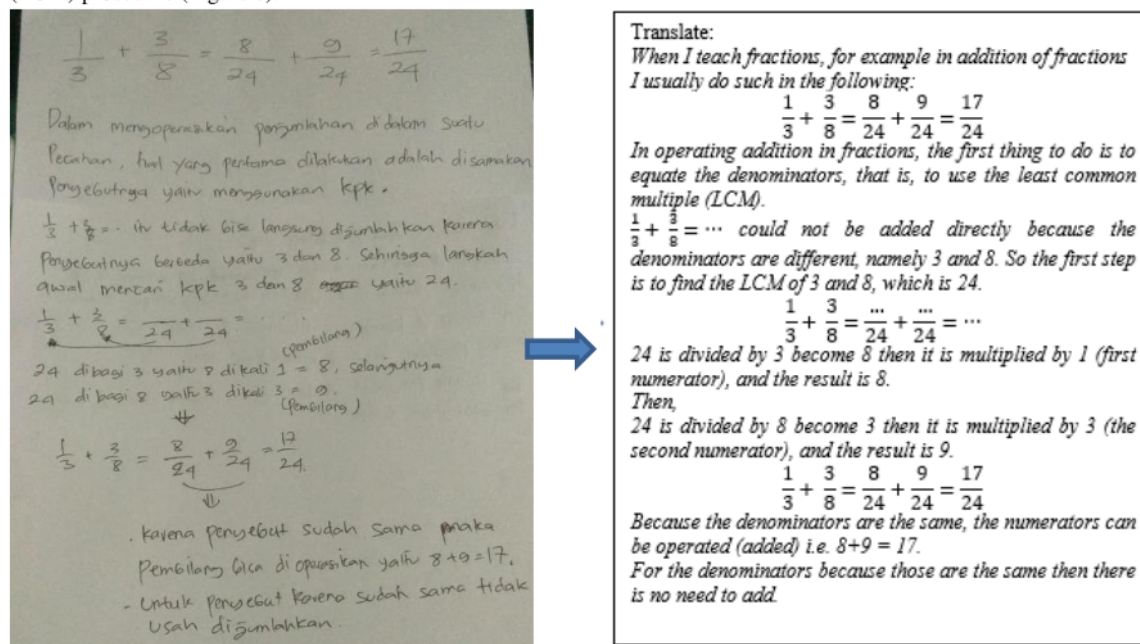 1/3 + 3/8 = 8/24 + 9/24 = 17/24
Dalam mengoperasikan penjumlahan didalam suatu
Pecahan, hal yang pertama dilakukan adalah disamakan
Penyebutnya yaitu menggunakan kpk.
1/3 + 3/8 = .. itu tidak bisa langsung dijumlahkan karena
Penyebutnya berbeda yaitu 3 dan 8. Sehingga langkah
awal mencari kpk 3 dan 8 yaitu 24.
1/3 + 3/8 = /24 + /24 = . . . .
(pembilang)
24 dibagi 3 yaitu 8 dikali 1 = 8, selanjutnya
24 dibagi 8 yaitu 3 dikali 3 = 9.
(Pembilang)
⇓
1/3 + 3/8 = 8/24 + 9/24 = 17/24.
⇓
. karena penyebut sudah sama maka
Pembilang bisa dioperasikan yaitu 8+9=17.
- Untuk penyebut karena sudah sama tidak
usah dijumlahkan.
Translate:
When I teach fractions, for example in addition of fractions
I usually do such in the following:
1/3 + 3/8 = 8/24 + 9/24 = 17/24
In operating addition in fractions, the first thing to do is to
equate the denominators, that is, to use the least common
multiple (LCM).
1/3 + 3/8 = ⋯ could not be added directly because the
denominators are different, namely 3 and 8. So the first step
is to find the LCM of 3 and 8, which is 24.
1/3 + 3/8 = .../24 + .../24 = ⋯
24 is divided by 3 become 8 then it is multiplied by 1 (first
numerator), and the result is 8.
Then,
24 is divided by 8 become 3 then it is multiplied by 3 (the
second numerator), and the result is 9.
1/3 + 3/8 = 8/24 + 9/24 = 17/24
Because the denominators are the same, the numerators can
be operated (added) i.e. 8+9 = 17.
For the denominators because those are the same then there
is no need to add.